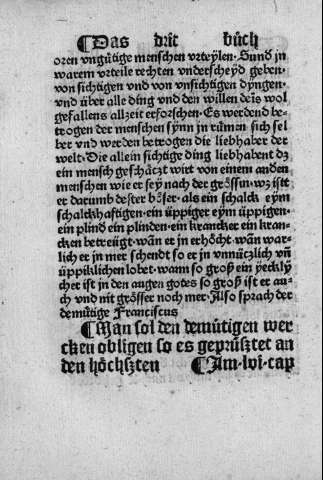 ¶Das drit buch
oren vngütige menschen vrteylen. Sund in
warem vrteile rechten vnderscheyd geben.
von sichtigen vnd von vnsichtigen dyngen.
vnd über alle ding vnd den willen deīs wol
gefallens allzeit erforschen. Es werdend be-
trogen der menschen synn in rümen sich sel
ber vnd werden betrogen die liebhaber der
welt. Die allein sichtige ding liebhabent dz
ein mensch geschätzt wirt von einem anden
menschen wie er sey nach der grössin. wz istt
er darumb dester böser. als ein schalck eym
schalckhaftigen. ein üppiger eym üppigen.
ein plind ein plinden. ein krancker ein kran-
cken betreügt. wañ er in erhöcht. wañ war-
lich er in mer schendt so er in vnnüczlich vñ
üppiklichen lobet. wann so groß ein yecklý
cher ist in den augen gotes so groß ist er au-
ch vnd nit grösser noch mer. Also sprach der
demütige Franciscus
¶Man sol den demütigen wer
cken obligen so es geprüsztet an
den höchszten ¶Im. lvi. cap